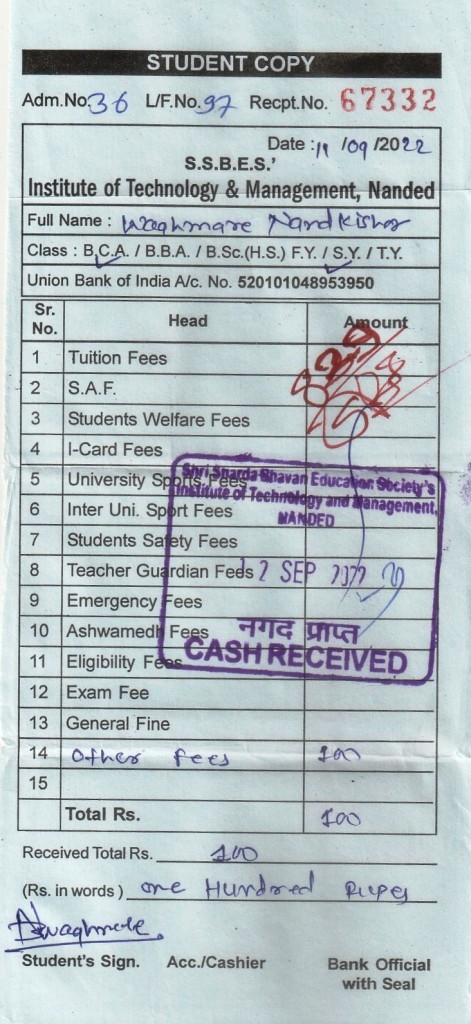 STUDENT COPY
Adm.No. 36 L/F.No. 97 Recpt.No. 67332
Date : 11 /09 /2022
S.S.B.E.S.'
Institute of Technology & Management, Nanded
Full Name : Waghmare Nandkishor
Class : B.C.A. / B.B.A. / B.Sc.(H.S.) F.Y. / S.Y. / T.Y.
Union Bank of India A/c. No. 520101048953950
Sr. No. Head Amount
1 Tuition Fees
2 S.A.F.
3 Students Welfare Fees
4 I-Card Fees
5 University Sports Fees
6 Inter Uni. Sport Fees
7 Students Safety Fees
8 Teacher Guardian Fees
9 Emergency Fees
10 Ashwamedh Fees
11 Eligibility Fees
12 Exam Fee
13 General Fine
14 Other fees 100
15
Total Rs. 100
Shri Sharda Bhavan Education Society's
Institute of Technology and Management,
NANDED
12 SEP 2022
नगद प्राप्त
CASH RECEIVED
Received Total Rs. 100
(Rs. in words) one Hundred Rupes
Nwaghmare.
Student's Sign. Acc./Cashier Bank Official
with Seal